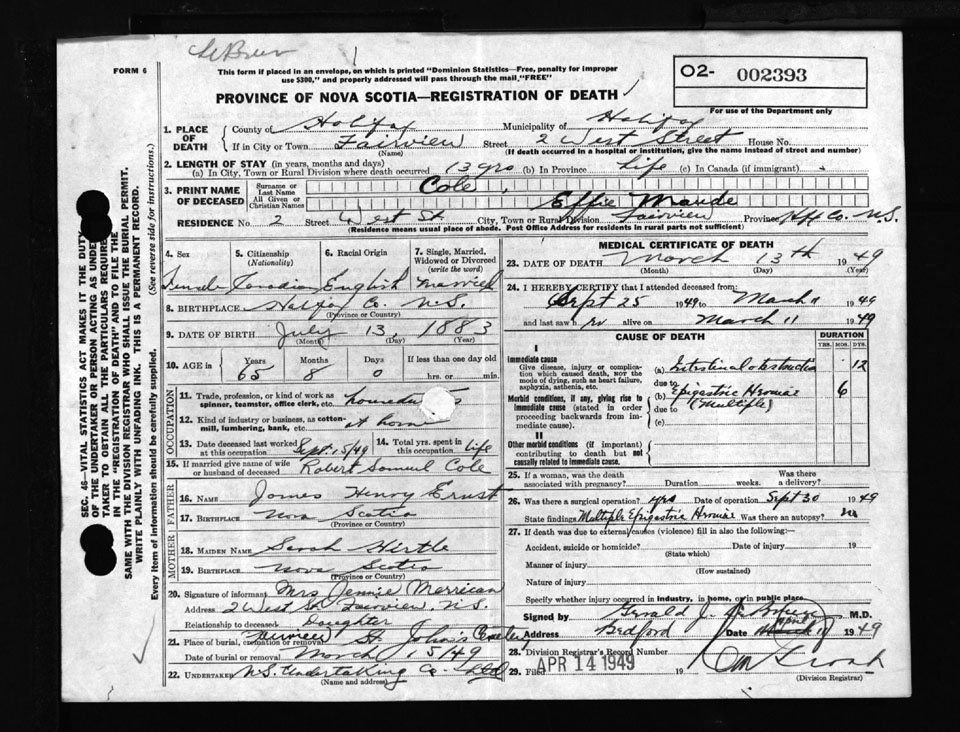 FORM 6
This form if placed in an envelope, on which is printed "Dominion Statistics—Free, penalty for improper
use $300," and properly addressed will pass through the mail "FREE"
O2- 002393
For use of the Department only
PROVINCE OF NOVA SCOTIA—REGISTRATION OF DEATH
1. PLACE OF DEATH
County of Halifax Municipality of Halifax
If in City or Town Fairview Street 2 West Street House No.
(Name) (If death occurred in a hospital or institution, give the name instead of street and number)
2. LENGTH OF STAY (in years, months and days)
(a) In City, Town or Rural Division where death occurred 13 yrs (b) In Province Life (c) In Canada (if immigrant)
3. PRINT NAME OF DECEASED
Surname or Last Name Cole,
All Given or Christian Names Effie Maude
RESIDENCE No. 2 Street West St City, Town or Rural Division Fairview Province Hfx Co. N.S.
(Residence means usual place of abode. Post Office Address for residents in rural parts not sufficient)
4. Sex Female
5. Citizenship (Nationality) Canadian
6. Racial Origin English
7. Single, Married, Widowed or Divorced (write the word) Married
8. BIRTHPLACE Halifax Co. N.S.
(Province or Country)
9. DATE OF BIRTH July 13, 1883
(Month) (Day) (Year)
10. AGE in Years 65 Months 8 Days 0 If less than one day old hrs. or min.
OCCUPATION
11. Trade, profession, or kind of work as spinner, teamster, office clerk, etc.
12. Kind of industry or business, as cotton-mill, lumbering, bank, etc. at home
13. Date deceased last worked at this occupation Sept. 15/49
14. Total yrs. spent in this occupation life
15. If married give name of wife or husband of deceased Robert Samuel Cole
FATHER
16. Name James Henry Ernst
17. Birthplace Nova Scotia
(Province or Country)
MOTHER
18. Maiden Name Sarah Hirtle
19. Birthplace Nova Scotia
(Province or Country)
20. Signature of informant Mrs Jennie Merrican
Address 2 West St. Fairview, N.S.
Relationship to deceased Daughter
21. Place of burial, cremation or removal Fairview St. John's
Date of burial or removal March 15/49
22. UNDERTAKER N.S. Undertaking Co. Ltd
(Name and address)
MEDICAL CERTIFICATE OF DEATH
23. DATE OF DEATH March 13th 1949
(Month) (Day) (Year)
24. I HEREBY CERTIFY that I attended deceased from:
Sept 25 1949 to March 11 1949
and last saw h er alive on March 11 1949
CAUSE OF DEATH
DURATION
YRS. MOS. DYS.
I
Immediate cause
Give disease, injury or complication which caused death, not the mode of dying, such as heart failure, asphyxia, asthenia, etc.
(a) Intestinal obstruction 12
due to
Morbid conditions, if any, giving rise to immediate cause (stated in order proceeding backwards from immediate cause).
(b) Epigastric Herniae 6
due to (Multiple)
(c)
II
Other morbid conditions (if important) contributing to death but not causally related to immediate cause.
25. If a woman, was the death associated with pregnancy? Duration weeks. Was there a delivery?
26. Was there a surgical operation? yes Date of operation Sept 30 1949
State findings Multiple Epigastric Herniae Was there an autopsy? no
27. If death was due to external causes (violence) fill in also the following:
Accident, suicide or homicide? Date of injury 19
(State which)
Manner of injury
(How sustained)
Nature of injury
Specify whether injury occurred in industry, in home, or in public place.
Signed by Gerald J. M.D.
Address Bedford Date April 1949
28. Division Registrar's Record Number
29. Filed APR 14 1949 19
(Division Registrar)
SEC. 46—VITAL STATISTICS ACT MAKES IT THE DUTY
OF THE UNDERTAKER OR PERSON ACTING AS UNDER-
TAKER TO OBTAIN ALL THE PARTICULARS REQUIRED
IN THE "REGISTRATION OF DEATH" AND TO FILE THE
SAME WITH THE DIVISION REGISTRAR WHO SHALL ISSUE THE BURIAL PERMIT.
WRITE PLAINLY WITH UNFADING INK. THIS IS A PERMANENT RECORD.
Every item of information should be carefully supplied. (See reverse side for instructions.)